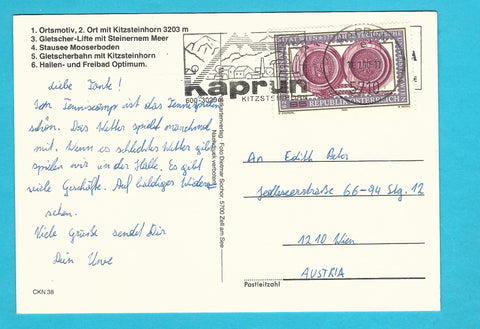 1. Ortsmotiv, 2. Ort mit Kitzsteinhorn 3203 m
3. Gletscher-Lifte mit Steinernem Meer
4. Stausee Mooserboden
5. Gletscherbahn mit Kitzsteinhorn
6. Hallen- und Freibad Optimum.
Liebe Tante!
Im Tenniscamp ist das Tennisspielen
schön. Das Wetter spielt manchmal
mit. Wenn es schlechtes Wetter gibt
spielen wir in der Halle. Es gibt
viele Geschäfte. Auf baldiges Wieder
sehen.
Viele Grüße sendet Dir
Dein
CKN 38
Foto Dietmar Sochor, 5700 Zell am See
Nachdruck verboten
Kaprun
KITZSTEIN
REPUBLIK ÖSTERREICH
5710
An Edith
66-94 Stg. 12
1210 Wien
AUSTRIA
Postleitzahl